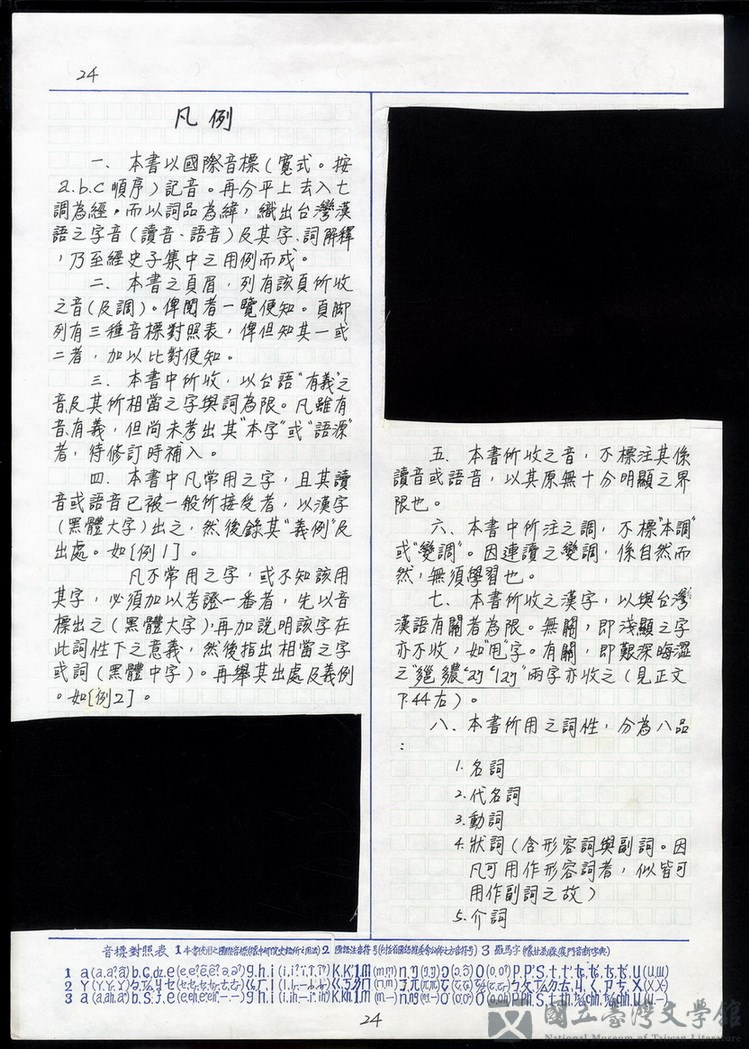 24
凡例
一、本書以國際音標(寬式。按
a.b.c順序)記音。再分平上去入七
調為經。而以詞品為緯,織出台灣漢
語之字音(讀音、語音)及其字、詞解釋
,乃至經史子集中之用例而成。
二、本書之頁眉,列有該頁所收
之音(及調)。俾閱者一覽便知。頁脚
列有三種音標對照表,俾但知其一或
二者,加以比對便知。
三、本書中所收,以台語"有義"之
音及其所相當之字與詞為限。凡雖有
音有義,但尚未考出其"本字"或"語源"
者,待修訂時補入。
四、本書中凡常用之字,且其讀
音或語音已被一般所接受者,以漢字
(黑體大字)出之,然後錄其"義例"及
出處。如[例1]。
凡不常用之字,或不知該用
其字,必須加以考證一番者,先以音
標出之(黑體大字),再加説明該字在
此詞性下之意義,然後指出相當之字
或詞(黑體中字)。再舉其出處及義例
。如[例2]。
五、本書所收之音,不標注其係
讀音或語音,以其原無十分明顯之界
限也。
六、本書中所注之調,不標"本調"
或"變調"。因連讀之變調,係自然而
然,無須學習也。
七、本書所收之漢字,以與台灣
漢語有關者為限。無關,即淺顯之字
亦不收,如"甩"字。有關,即艱深晦澀
之 兩字亦收之(見正文
P.44右)。
八、本書所用之詞性,分為八品
:
1.名詞
2.代名詞
3.動詞
4.狀詞(含形容詞與副詞。因
凡可用作形容詞者,似皆可
用作副詞之故)
5.介詞
音標對照表 1 2 3
24
國立臺灣文學館
National Museum of Taiwan Literature